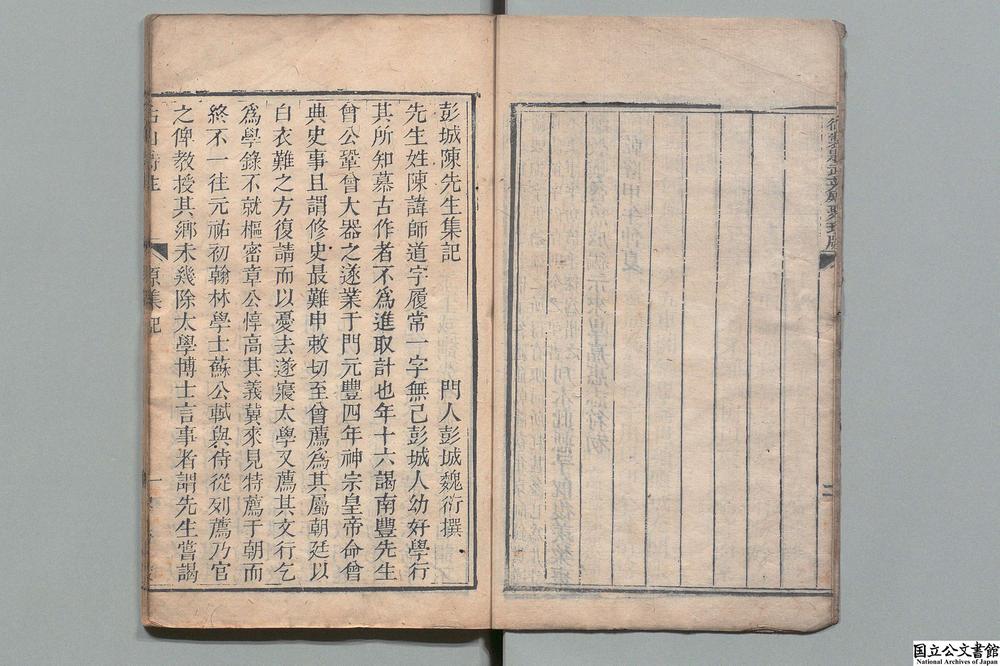 二
彭城陳先生集記
門人彭城魏衍撰
先生姓陳諱師道字履常一字無己彭城人幼好學行
其所知慕古作者不爲進取計也年十六謁南豐先生
曾公鞏曾大器之遂業于門元豐四年神宗皇帝命曾
典史事且謂修史最難申敕切至曾薦爲其屬朝廷以
白衣難之方復請而以憂去遂寢太學又薦其文行乞
爲學錄不就樞密章公惇高其義冀來見特薦于朝而
終不一往元祐初翰林學士蘇公軾與侍從列薦乃官
之俾教授其鄉未幾除太學博士言事者謂先生嘗謁
原集記
一
国立公文書館
National Archives of Japan